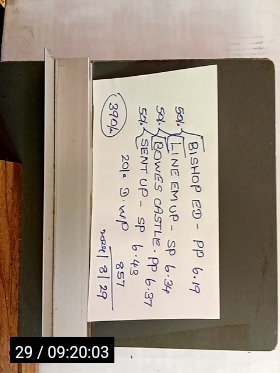 BISHOP ED - PP 6.19
50/. LINE EM UP - SP 6.34
50/. BOWES CASTLE. PP 6.37
50/. SENT UP - SP 6.43
20/. D. WP
390/.
857
29/8/2024
29 / 09:20:03